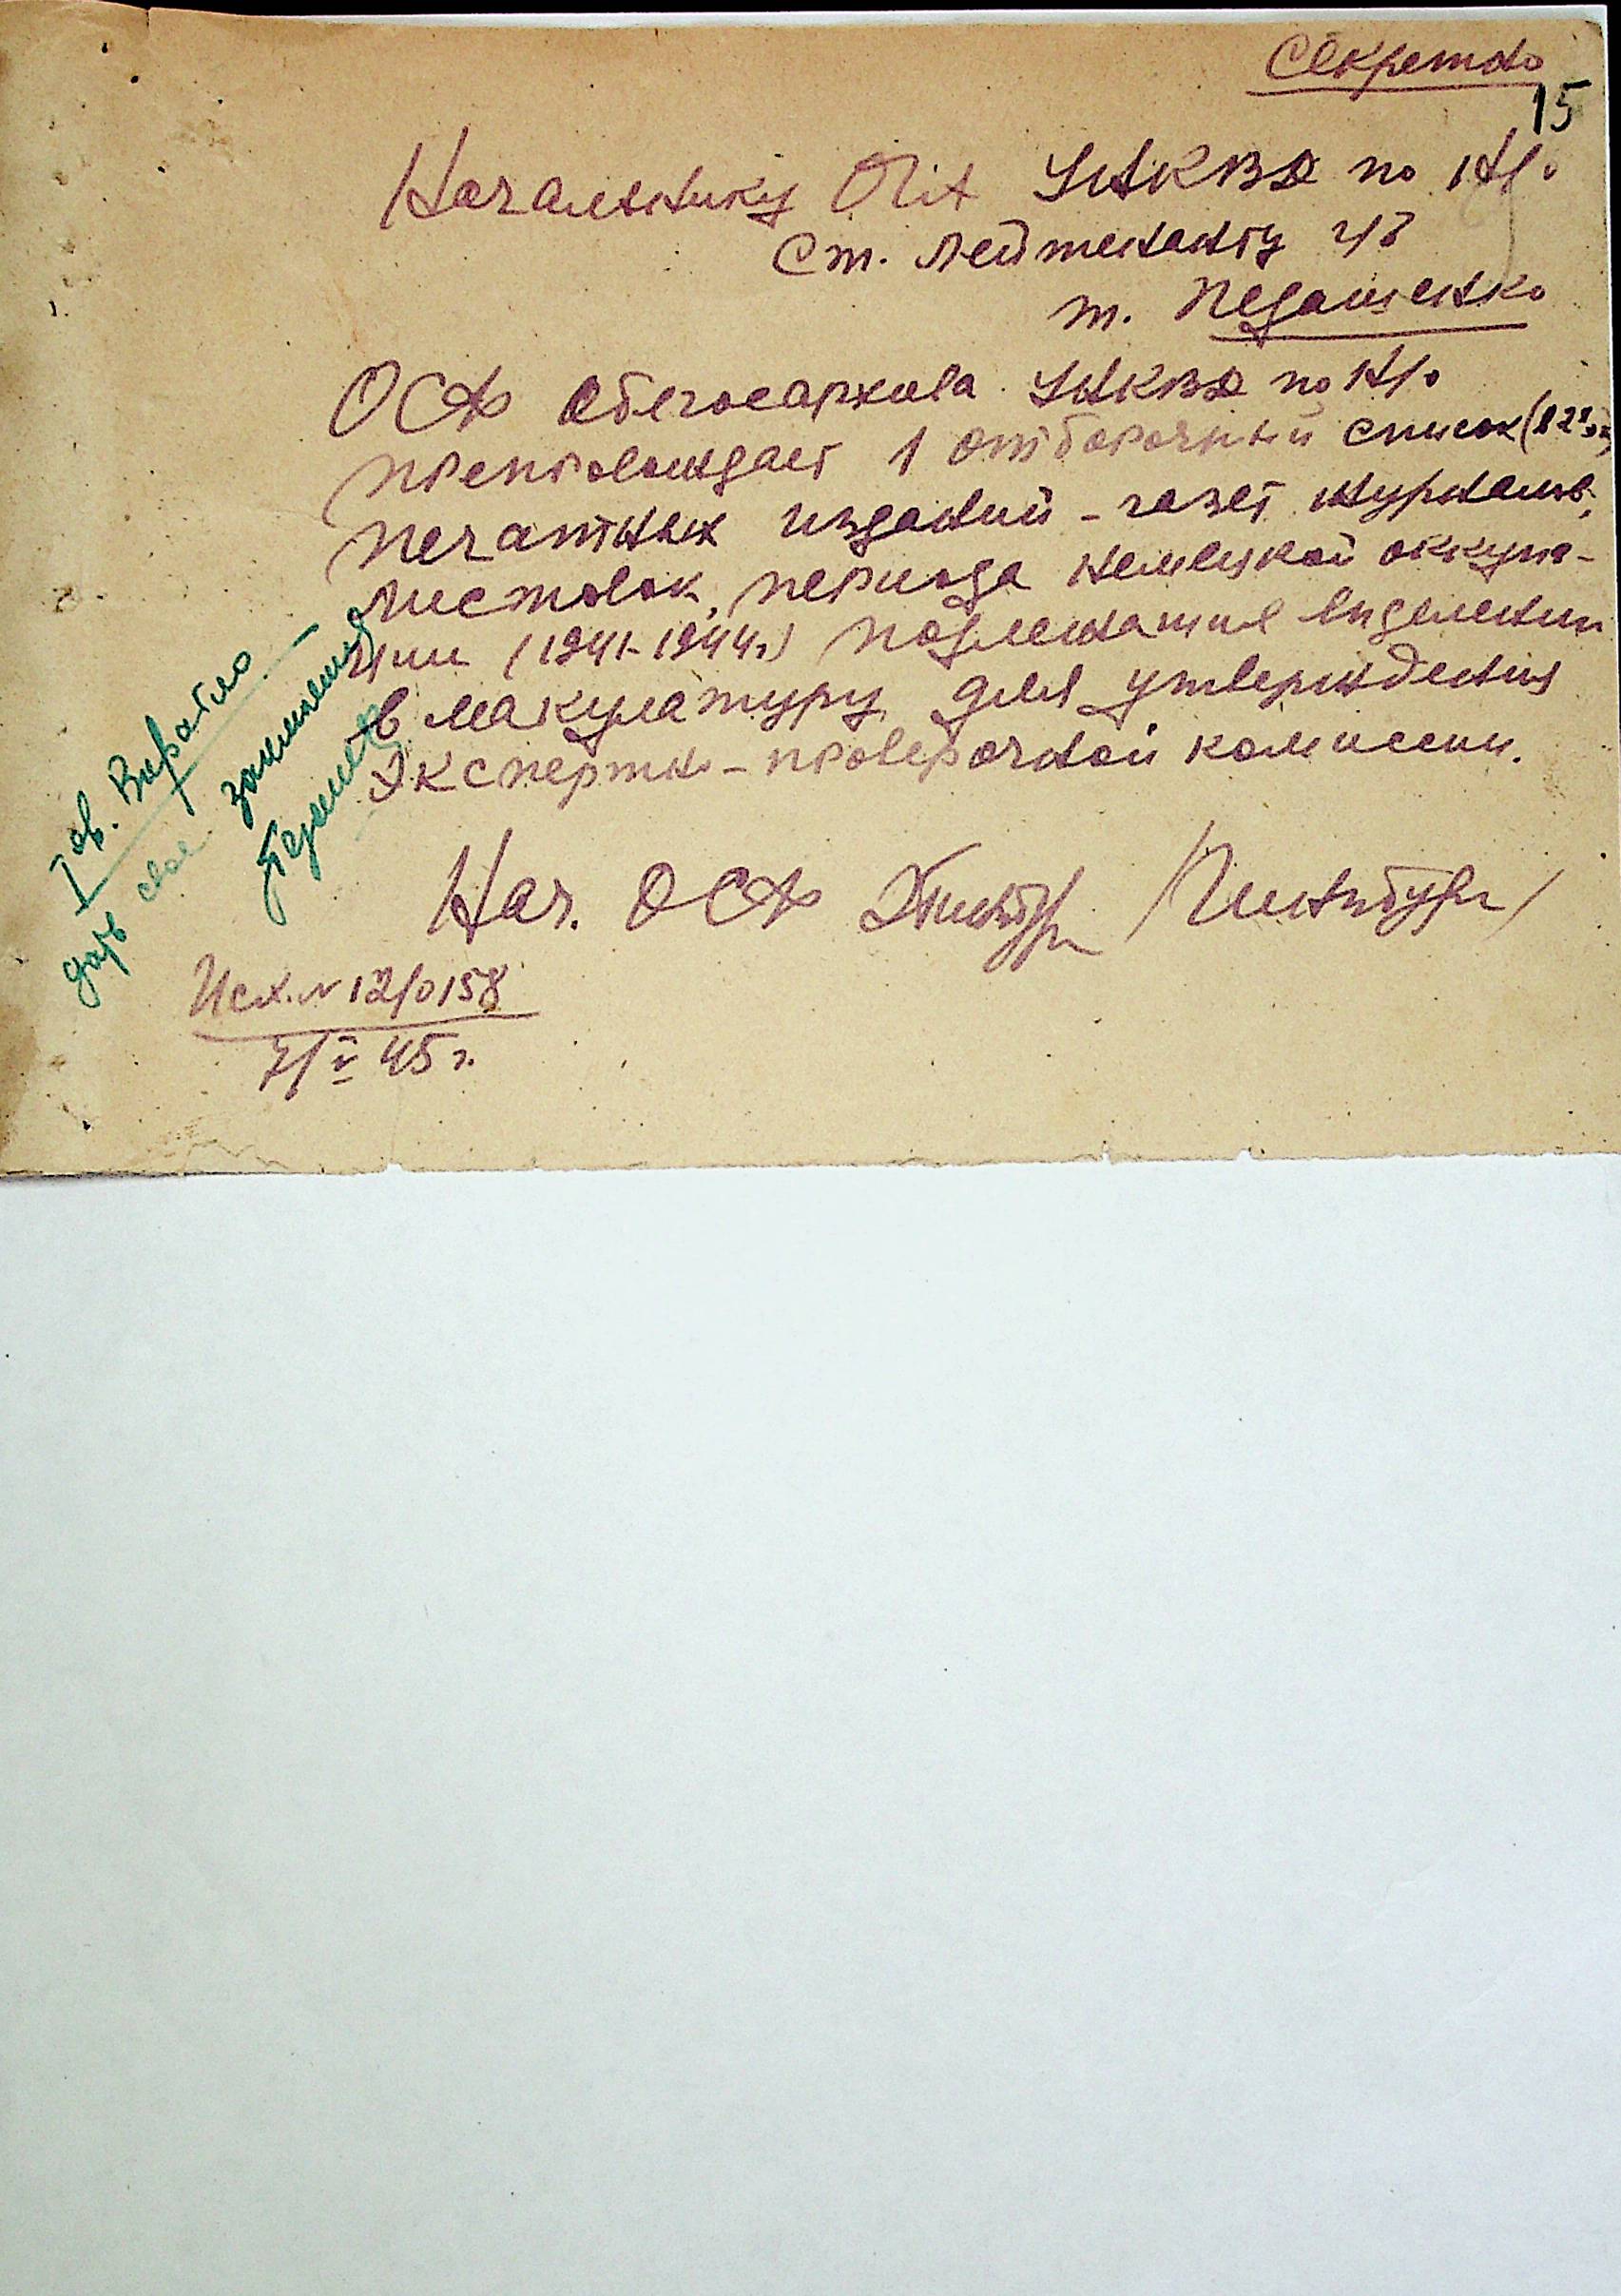 Секретно
15
Начальнику УНКВД по Н/о
Ст. лейтенанту г/б
т. Педашенко
ОСФ Облгосархива УНКВД по Н/о
препровождает 1 отборочный список
печатных изданий - газет журналов,
листовок, периода немецкой оккупа-
ции (1941-1944г) подлежащие выделению
в макулатуру для утверждения
Экспертно-проверочной комиссии.
Нач. ОСФ
Исх. № 12/0158
7/V 45 г.
Тов.
дать свое заключение